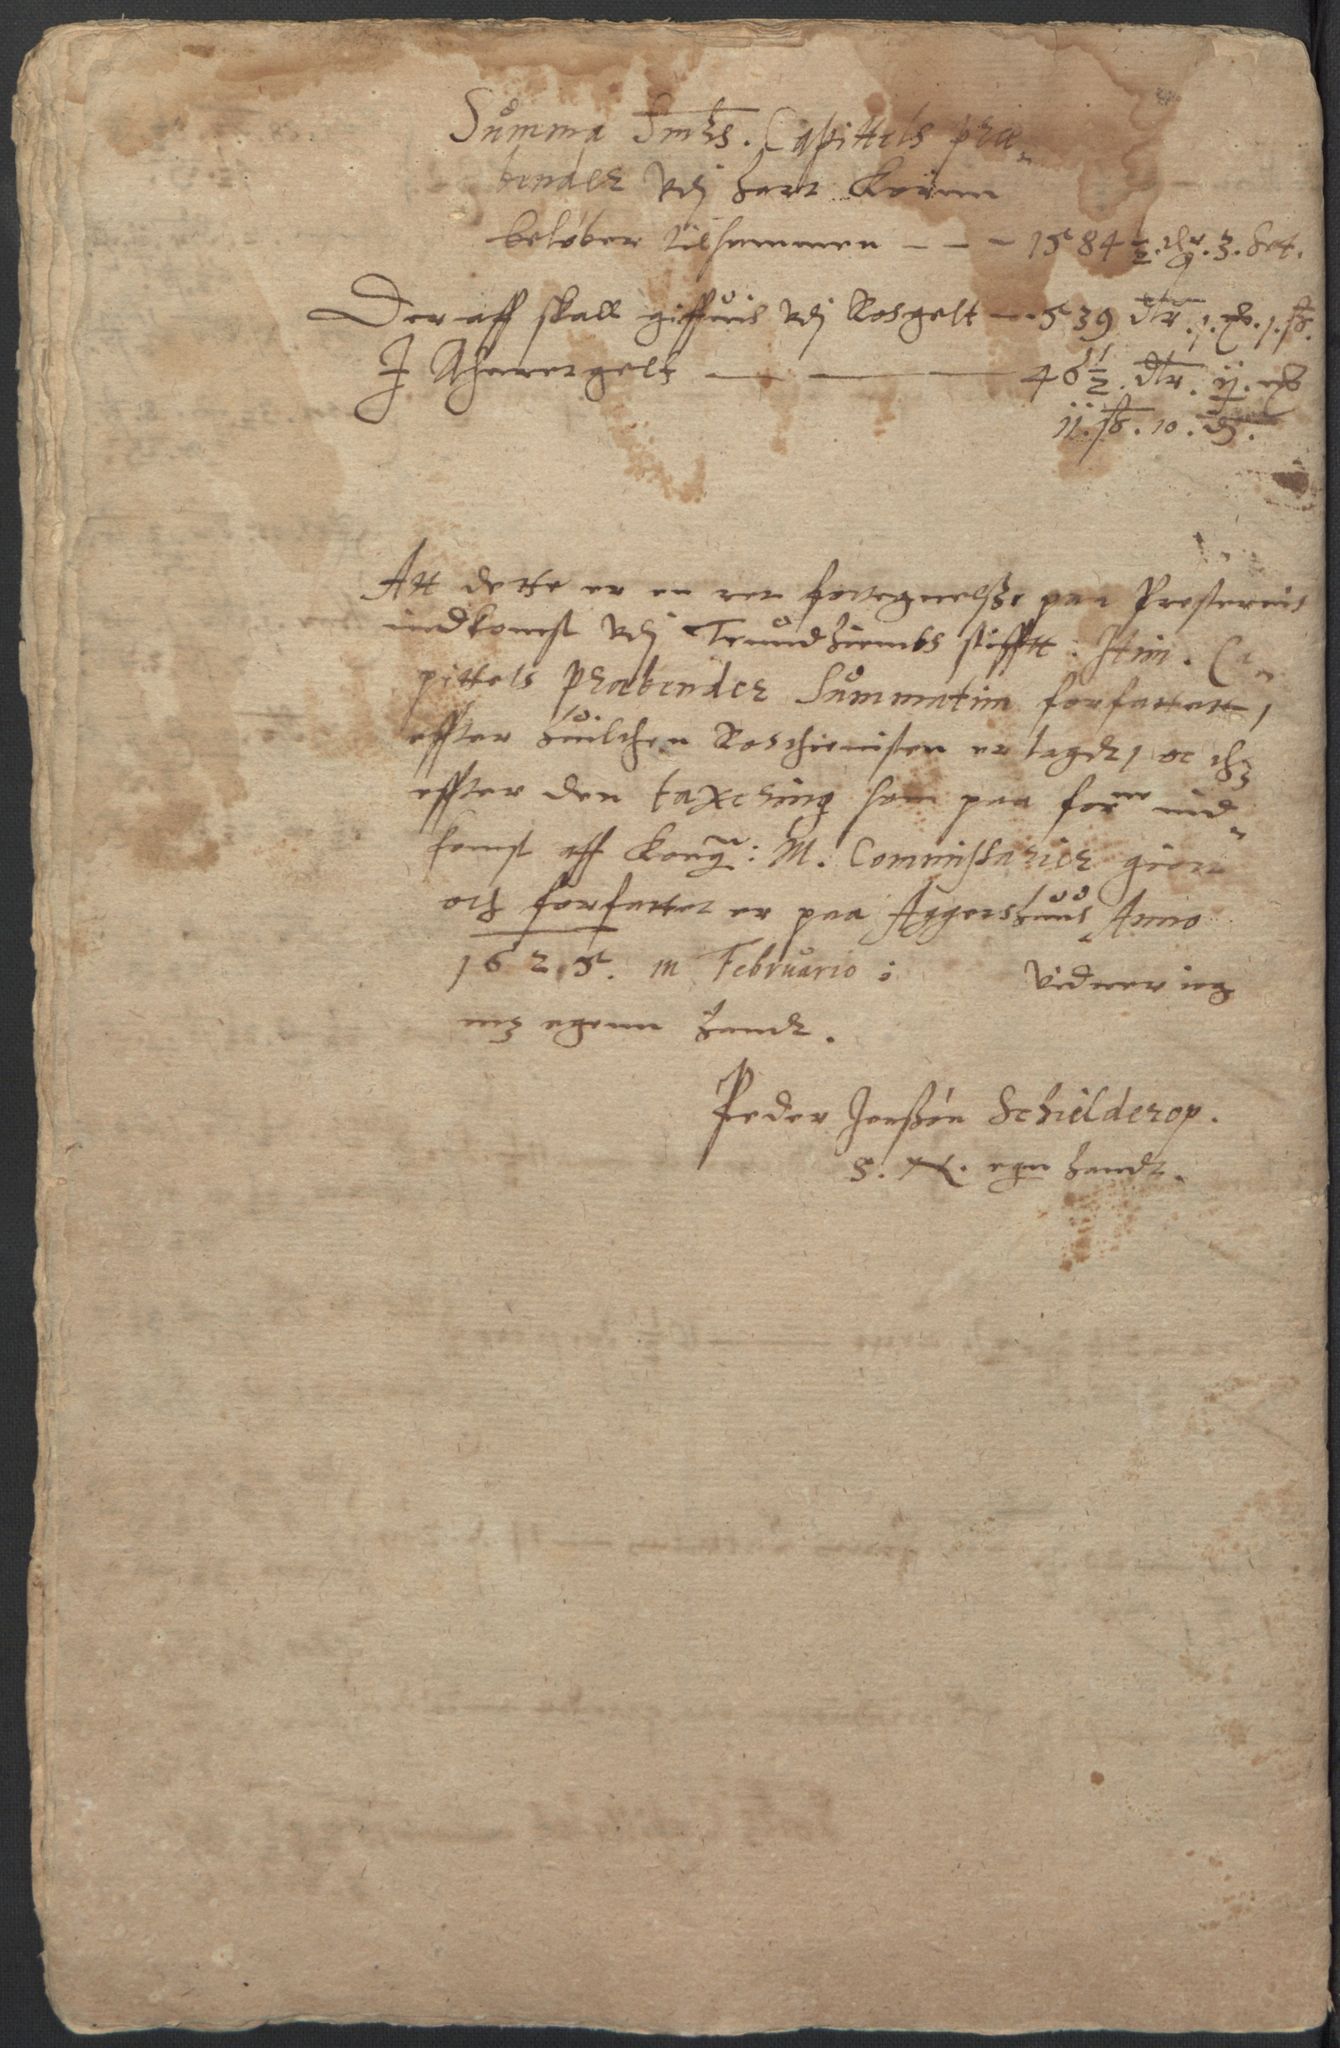 Summa Sm̄rs. Capittels præ-
bender vdj hart Kornn
beløber tilsammen - - - 1584½ . 3. Set.
Der aff skall giffuis vdj Rosgelt - 536 dlr. i. . 1. ß.
J Aaretgelt — — — 46½. dlr. ij.
ij. ß. 10. .
Att dette er en ret fortegnelsze paa Presternis
indkomst vdj Trundhiembs stifftt. Item. Ca-
pittels Præbender Summatim forfattett,
effter huilchen Roschienisten er lagdt, oc
effter den taxering som paa forne ind-
komst aff Kong: M. Commissarier giort
och forfattet er paa Aggershuus Anno
1625. in Februario: vidner ieg
mz egenn handt.
Peder Jenssøn Schielderop.
S. N. egn handt.